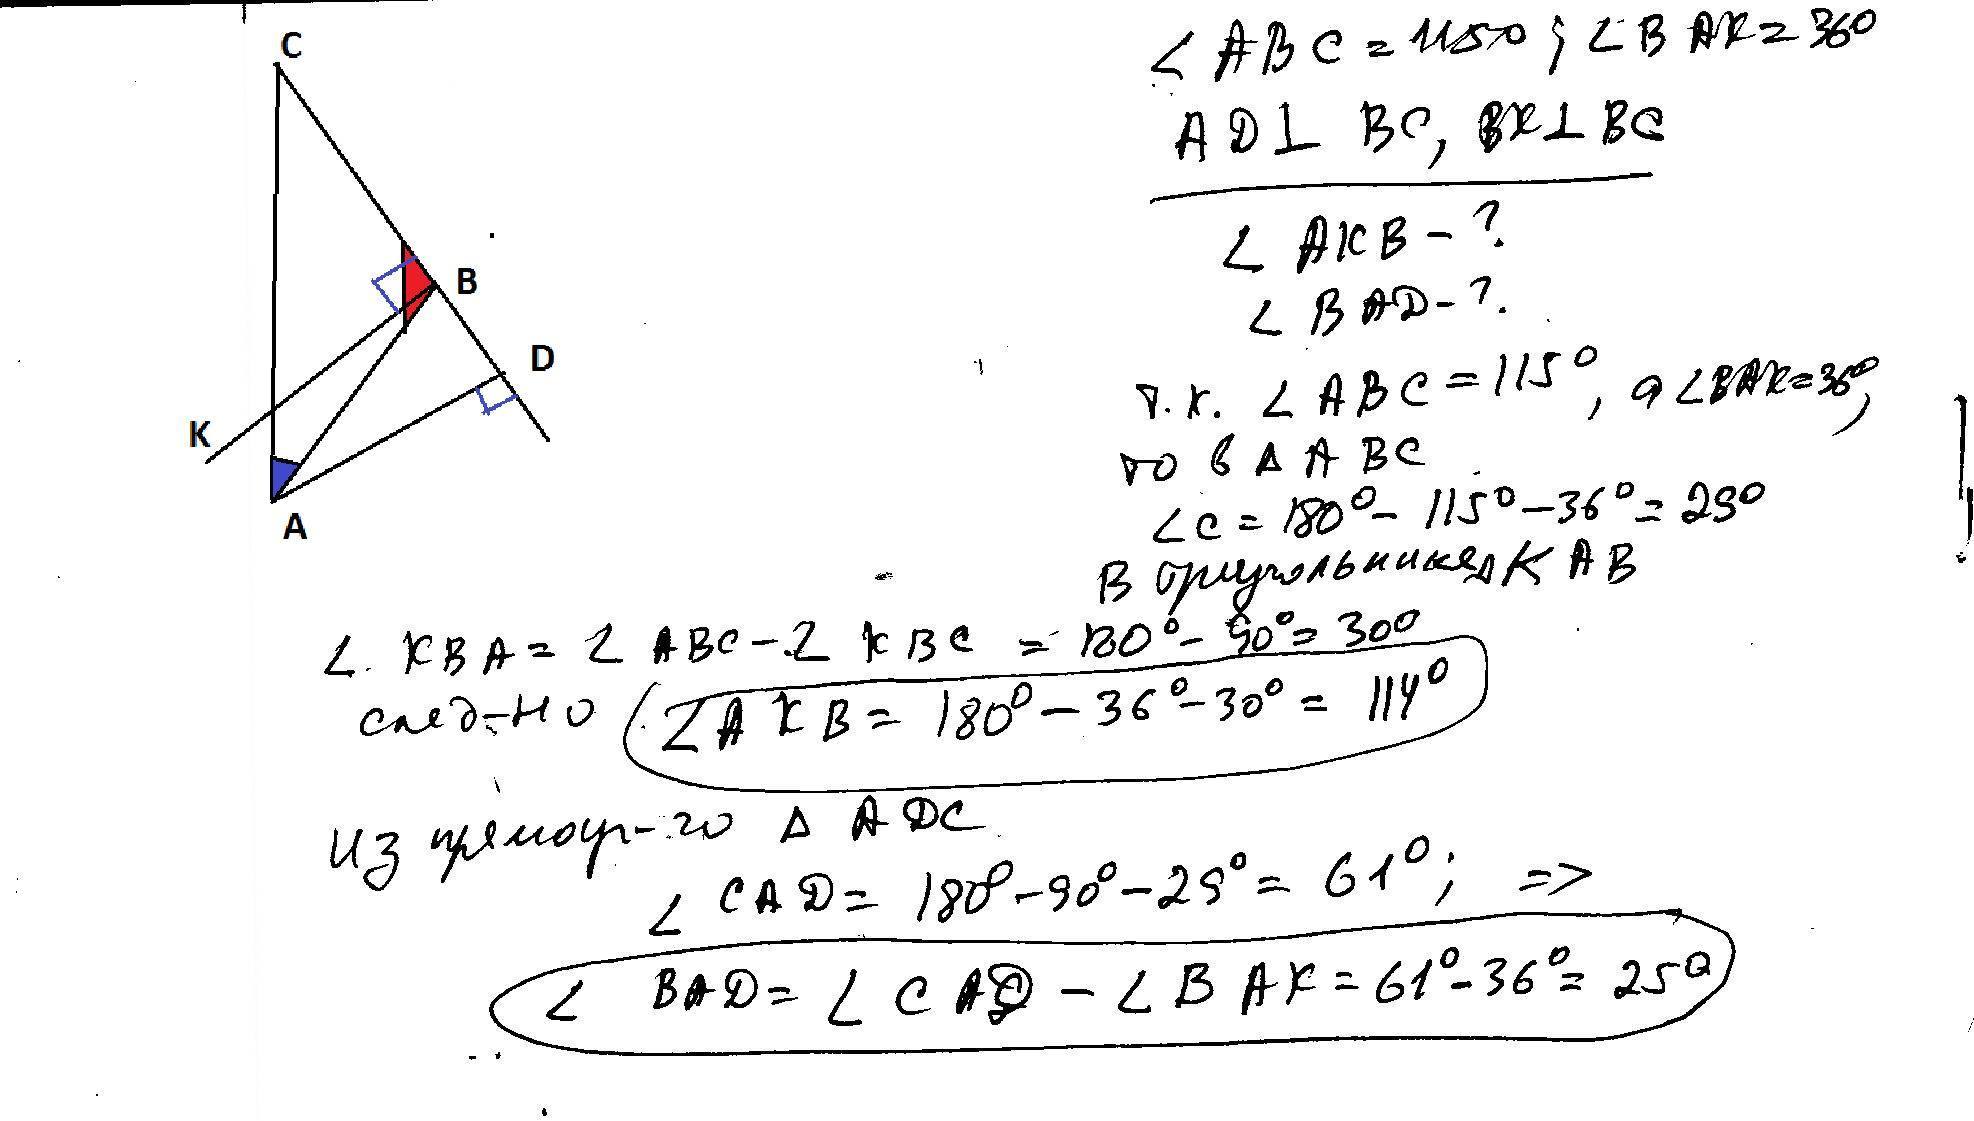 C
B
D
K
A
∠ABC = 115°; ∠BAK = 36°
AD⊥ BC, BK⊥BC
∠ AKB - ?
∠ BAD - ?.
т.к. ∠ABC = 115°, а ∠BAK = 36°,
то в Δ ABC
∠C = 180° - 115° - 36° = 29°
В треугольнике Δ KAB
∠. KBA = ∠ ABC - ∠ KBC = 120° - 90° = 30°
след-но ∠AKB = 180° - 36° - 30° = 114°
Из прямоуг-го Δ ADC
∠ CAD = 180° - 90° - 29° = 61°; =>
∠ BAD = ∠ CAD - ∠ BAK = 61° - 36° = 25°